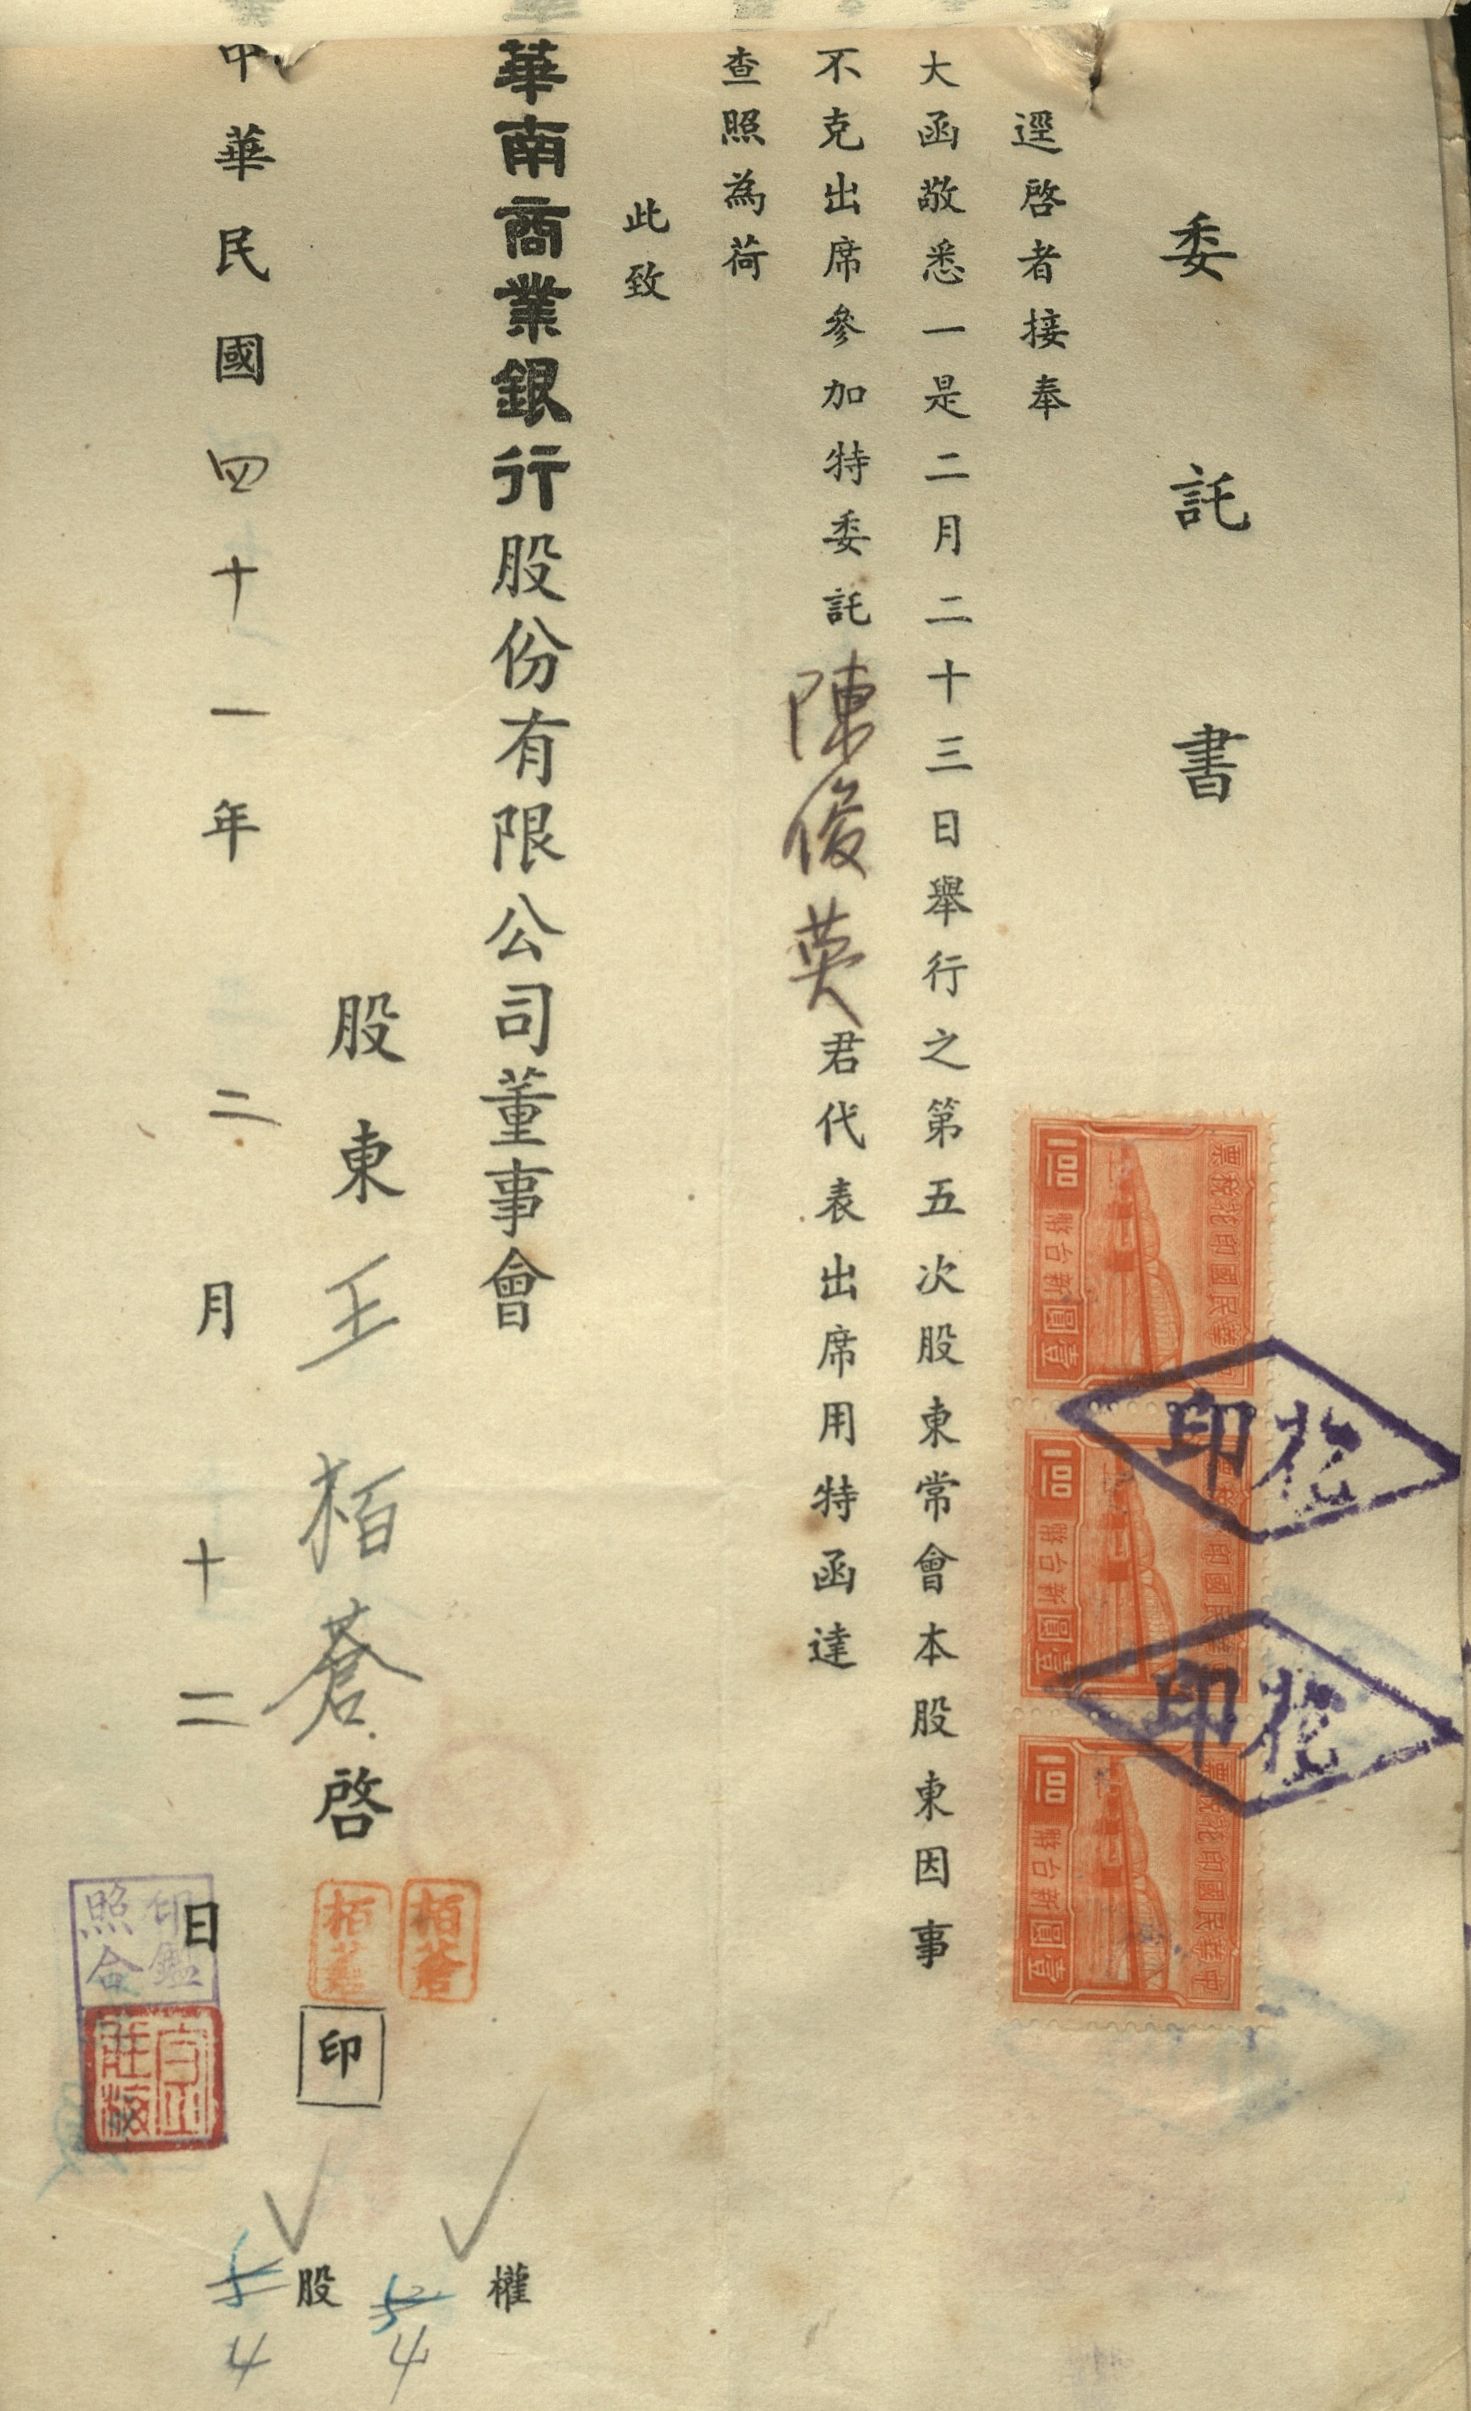 委託書
逕啓者接奉
大函敬悉一是二月二十三日舉行之第五次股東常會本股東因事
不克出席參加特委託陳俊英君代表出席用特函達
查照為荷
此致
華南商業銀行股份有限公司董事會
股東王栢蒼啓
栢蒼
栢蒼
印
中華民國四十一年二月十二日
印鑑
照合
權
5
4
股
5
4
中華民國印花稅票
新台幣
壹圓
中華民國印花稅票
新台幣
壹圓
中華民國印花稅票
新台幣
壹圓
花印
花印